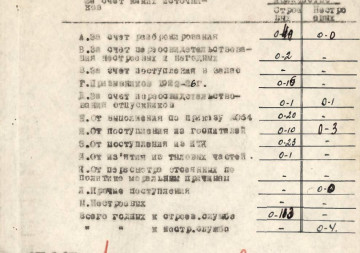 за счет каких источни-
ков
Строе Нестро
вых евых
А.За счет разбронирования 0-0
Б.За счет переосвидетельствова-
ния нестроевых и негодных 0-2 -
В.За счет поступления в запас - -
Г.Призывников 0-15 -
Д.За счет переосвидетельство-
вания отпускников 0-1 0-1
Е.От выполнения по приказу 0-20 -
Ж.От поступления из госпиталей 0-10 0-3
З.От поступления из 0-23 -
И.От из'ятия из тыловых частей. 0-1 -
К.От пересмотра состоящих по
политико моральным причинам - -
Л.Прочие поступления - 0-0
М.Нестроевых - -
Всего годных к строев.службе -
" " к нестр.службе - 0-4.